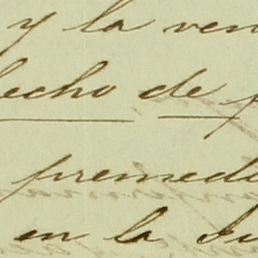 y la ven
echo de p
premedi
en la Ju